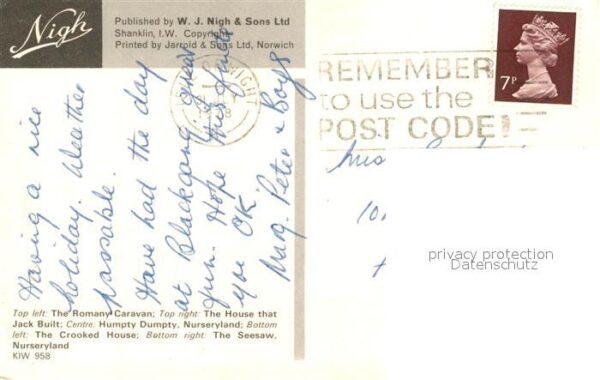 Nigh
Published by W. J. Nigh & Sons Ltd
Shanklin, I.W. Copyright
Printed by Jarrold & Sons Ltd, Norwich
REMEMBER
to use the
POST CODE!
7P
Having a nice
holiday. Weather
passable.
Have had the day
at Blackgang, great
fun. Hope this finds
you OK.
Marg. Peter & Boys
Top left: The Romany Caravan; Top right: The House that
Jack Built; Centre: Humpty Dumpty, Nurseryland; Bottom
left: The Crooked House; Bottom right: The Seesaw,
Nurseryland
KIW 958
privacy protection
Datenschutz